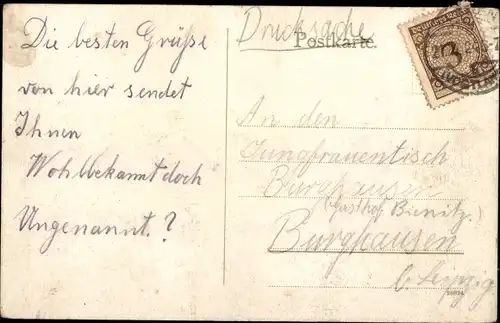 Die besten Grüße
von hier sendet
Ihnen
Wohlbekannt doch
Ungenannt.?
Drucksache
Postkarte.
Deutsches Reich
3
An den
Jungfrauentisch
Burghausen
(Gasthof Bienitz.)
Burghausen
b. Leipzig